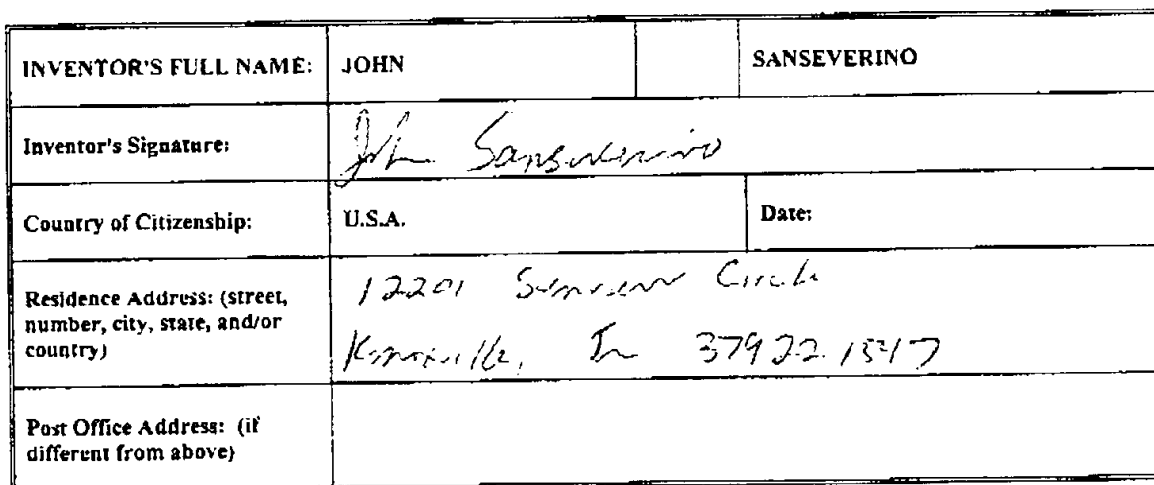 INVENTOR'S FULL NAME: JOHN SANSEVERINO
Inventor's Signature: John Sanseverino
Country of Citizenship: U.S.A. Date:
Residence Address: (street, number, city, state, and/or country)
12201 Circle
Knoxville, Tn 37922 1547
Post Office Address: (if different from above)